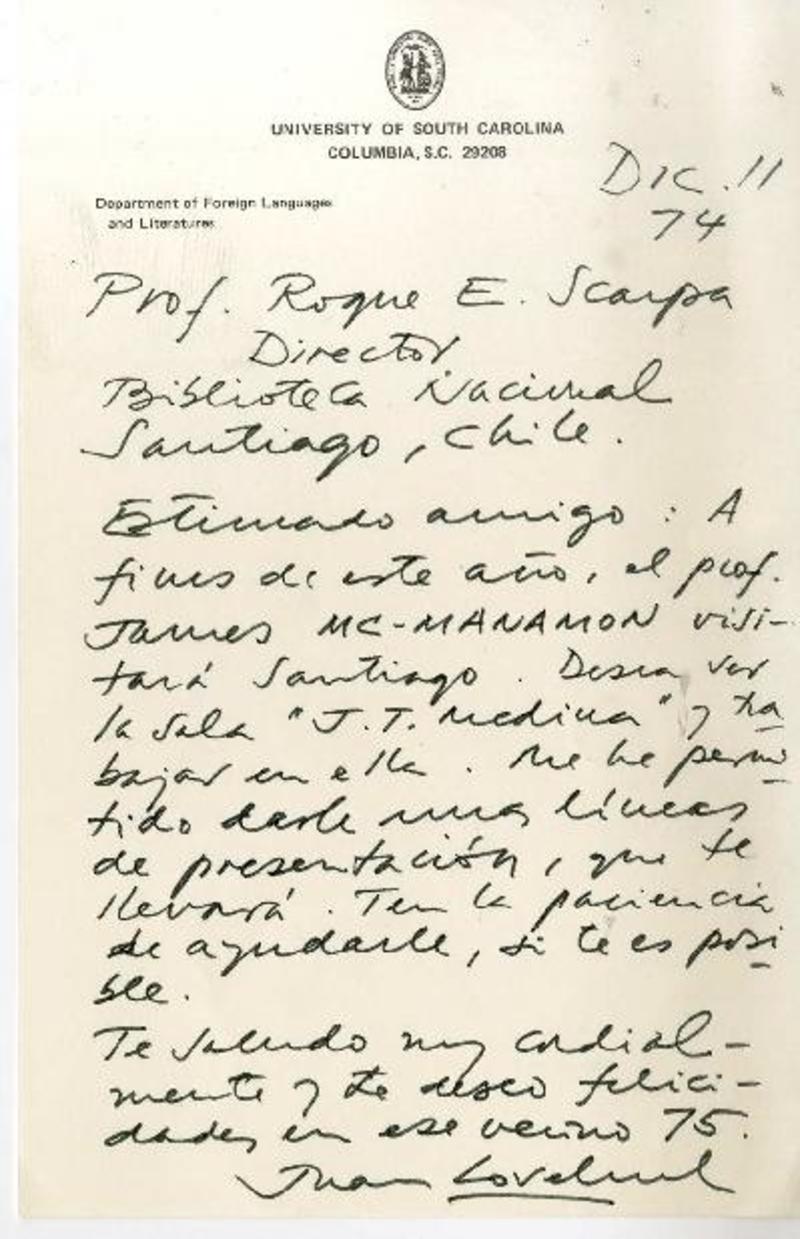 UNIVERSITY OF SOUTH CAROLINA
COLUMBIA, S.C. 29208
Department of Foreign Languages
and Literatures
Dic. 11
74
Prof. Roque E. Scarpa
Director
Biblioteca Nacional
Santiago, Chile.
Estimado amigo: A
fines de este año, el prof.
James MC-MANAMON visi-
tará Santiago. Desea ver
la sala "J.T. Medina" y tra
bajar en ella. Me he permi
tido darle unas líneas
de presentación, que te
llevará. Ten la paciencia
de ayudarle, si te es posi
ble.
Te saludo muy cordial-
mente y te deseo felici-
dades en ese vecino 75.
Juan Loveluck